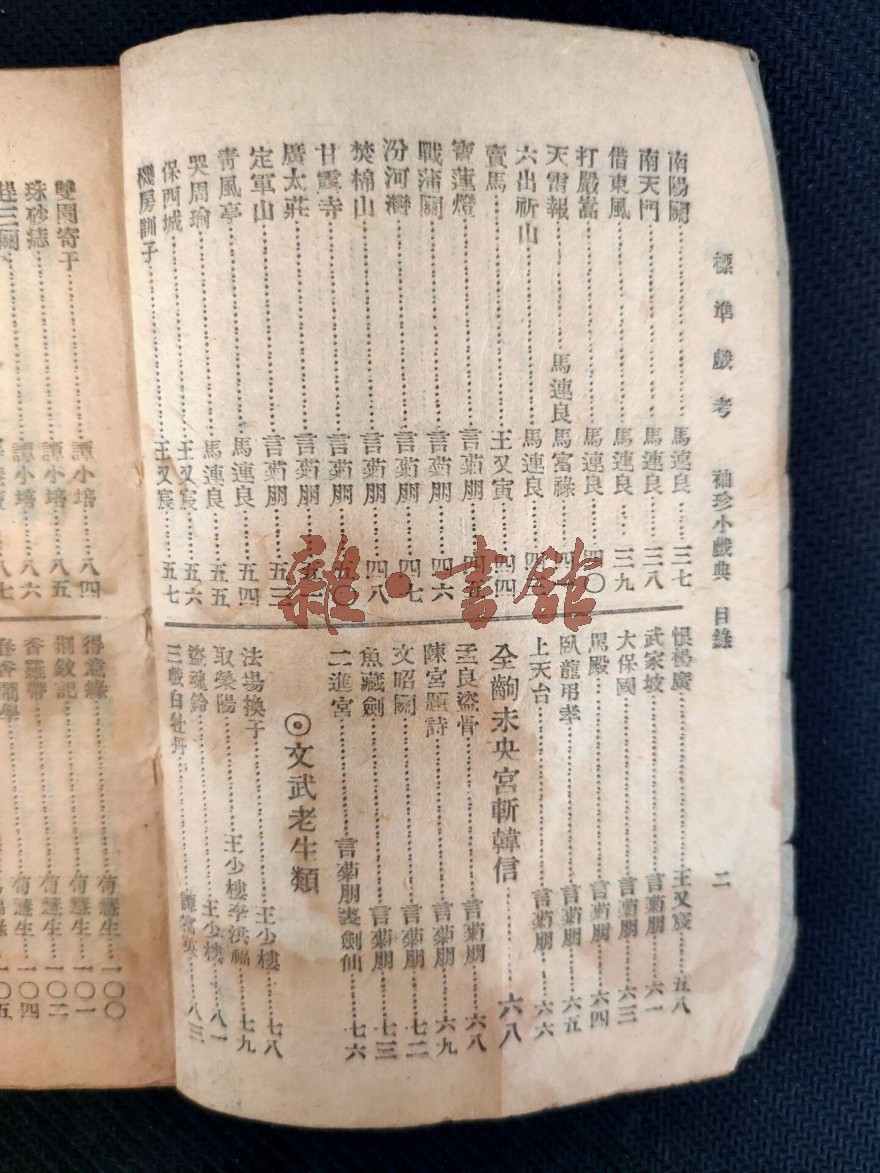 標準戲考 袖珍小戲典 目錄 二
南陽關 馬連良 三七
南天門 馬連良 三八
借東風 馬連良 三九
打嚴嵩 馬連良 四〇
天雷報 馬連良馬富祿 四一
六出祈山 馬連良
賣馬 王又宸 四四
寶蓮燈 言菊朋 四五
戰蒲關 言菊朋 四六
汾河灣 言菊朋 四七
焚棉山 言菊朋 四八
甘露寺 言菊朋 五〇
廣太莊 言菊朋
定軍山 言菊朋 五三
青風亭 馬連良 五四
哭周瑜 馬連良 五五
保西城 王又宸 五六
機房訓子 王又宸 五七
恨楊廣 王又宸 五八
武家坡 言菊朋 六一
大保國 言菊朋 六三
罵殿 言菊朋 六四
臥龍吊孝 言菊朋 六五
上天台 言菊朋 六六
全齣未央宮斬韓信 六八
孟良盜骨 言菊朋 六八
陳宮題詩 言菊朋 六九
文昭關 言菊朋 七二
魚藏劍 言菊朋 七三
二進宮 言菊朋裘劍仙 七六
⊙文武老生類
法場換子 王少樓 七八
取滎陽 王少樓李洪福 七九
盜魂鈴 王少樓 八一
三戲白牡丹 譚富英 八三
雙闌寄子 譚小培 八四
珠砂痣 譚小培 八五
趕三關 譚小培 八六
八七
得意緣 荀慧生 一〇〇
荊釵記 荀慧生 一〇一
香羅帶 荀慧生 一〇二
春香鬧學 荀慧生 一〇四
一〇五
雜·書舘